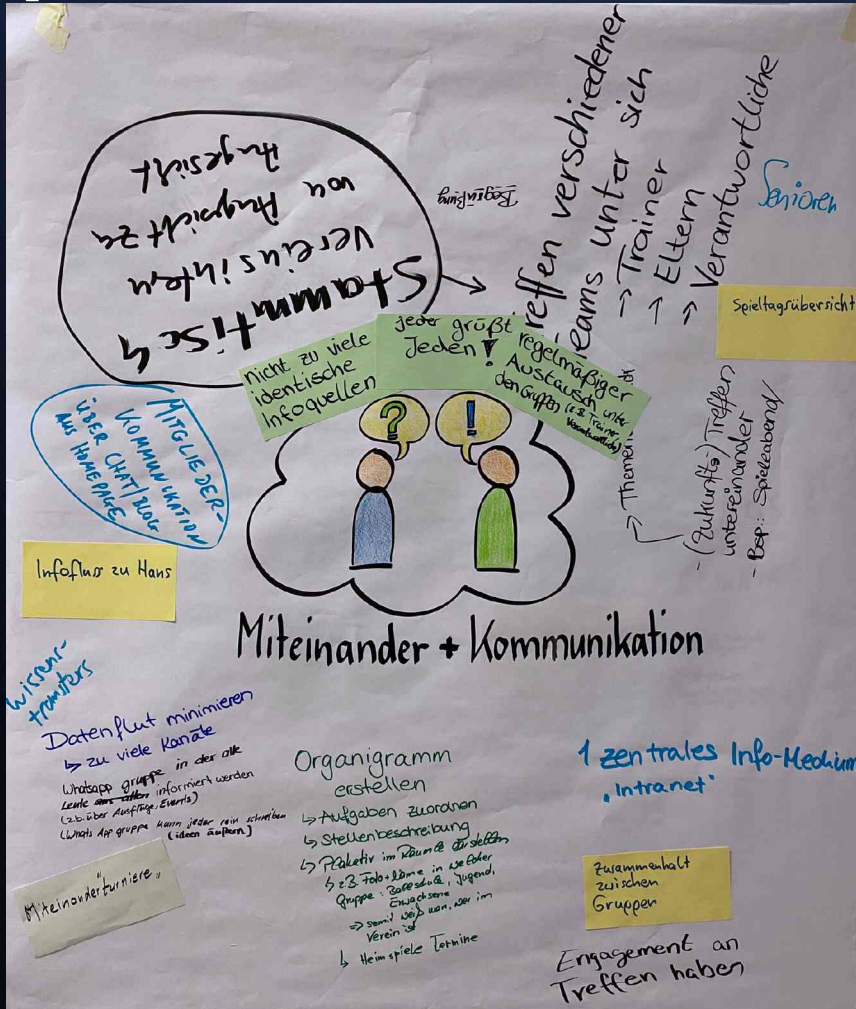 Stammtisch
vereinsintern
von Angesicht zu
Angesicht
Begrüßung
Treffen verschiedener
Teams unter sich
→ Trainer
→ Eltern
→ Verantwortliche
Senioren
Spieltagsübersicht
nicht zu viele
identische
Infoquellen
jeder grüßt
Jeden!
regelmäßiger
Austausch unter
den Gruppen (z.B. Trainer
Verantwortliche)
→ Themen
- (Zukunfts-) Treffen
untereinander
- Bsp.: Spieleabend
MITGLIEDER-
KOMMUNIKATION
ÜBER CHAT/BLOG
AUS HOMEPAGE
?
!
Infofluss zu Hans
Miteinander + Kommunikation
Wissens-
transfers
Datenflut minimieren
↳ zu viele Kanäle
Whatsapp gruppe in der alle
Leute informiert werden
(z.b. über Ausflüge, Events)
(Whats App gruppe kann jeder rein schreiben
(ideen äußern)
"Miteinanderturniere"
Organigramm
erstellen
↳ Aufgaben zuordnen
↳ Stellenbeschreibung
↳ Plakativ im Räumle darstellen
↳ z.B. Foto + Name in welcher
Gruppe: Ballschule, Jugend,
Erwachsene
⇒ somit weiß man, wer im
Verein ist
↳ Heimspiele Termine
1 zentrales Info-Medium
"Intranet"
Zusammenhalt
zwischen
Gruppen
Engagement an
Treffen haben